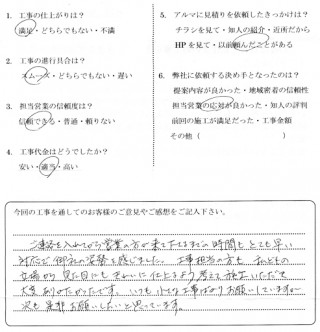 1. 工事の仕上がりは?
満足・どちらでもない・不満
2. 工事の進行具合は?
スムーズ・どちらでもない・遅い
3. 担当営業の信頼度は?
信頼できる・普通・頼りない
4. 工事代金はどうでしたか?
安い・適当・高い
5. アルマに見積りを依頼したきっかけは?
チラシを見て・知人の紹介・近所だから
HPを見て・以前頼んだことがある
6. 弊社に依頼する決め手となったのは?
提案内容が良かった・地域密着の信頼性
担当営業の応対が良かった・知人の評判
前回の施工が満足だった・工事金額
その他( )
今回の工事を通してのお客様のご意見やご感想をご記入下さい。
ご連絡を入れてから営業の方が来て下さるまでの時間もとても早い
対応で 御社の姿勢を感じました。工事担当の方も 私どもの
立場から 見た目にもきれいに仕上るよう考えて施工いただき
大変ありがたかったです。いつも小さな工事ばかりお願いしていますが
次も是非お願いしたいと思っています。